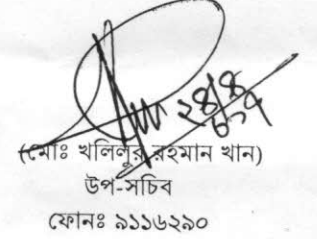 ২৪/৪
(মোঃ খলিলুর রহমান খান)
উপ-সচিব
ফোনঃ ৯১১৬২৯০